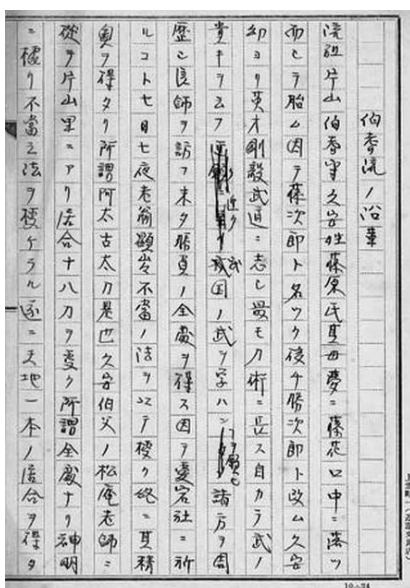 伯耆流ノ沿革
流祖片山伯耆守久安姓藤原氏其母夢ニ藤花口中ニ落ツ
而シテ胎ム因テ藤次郎ト名ツク後チ勝次郎ト改ム久安
幼ヨリ英才剛毅武道ニ志シ最モ刀術ニ長ス自カラ武ノ
貴キヲ云フ近ク我国ノ武ヲ学ハン 諸方ヲ周
歴シ良師ヲ訪フ未タ勝負ノ全 ヲ得ス因テ愛宕社ニ祈
ルコト七日七夜老翁顕 不當ノ法ヲ以テ授ク終ニ其精
奥ヲ得タリ所謂阿太古太刀是也久安伯父ノ松庵老師ニ
從ヲ片山里ニアリ居合十八刀ヲ受ク所謂全 ナリ神明
ニ 不當之法ヲ授ケラル遂ニ天地一本ノ居合ヲ得タ